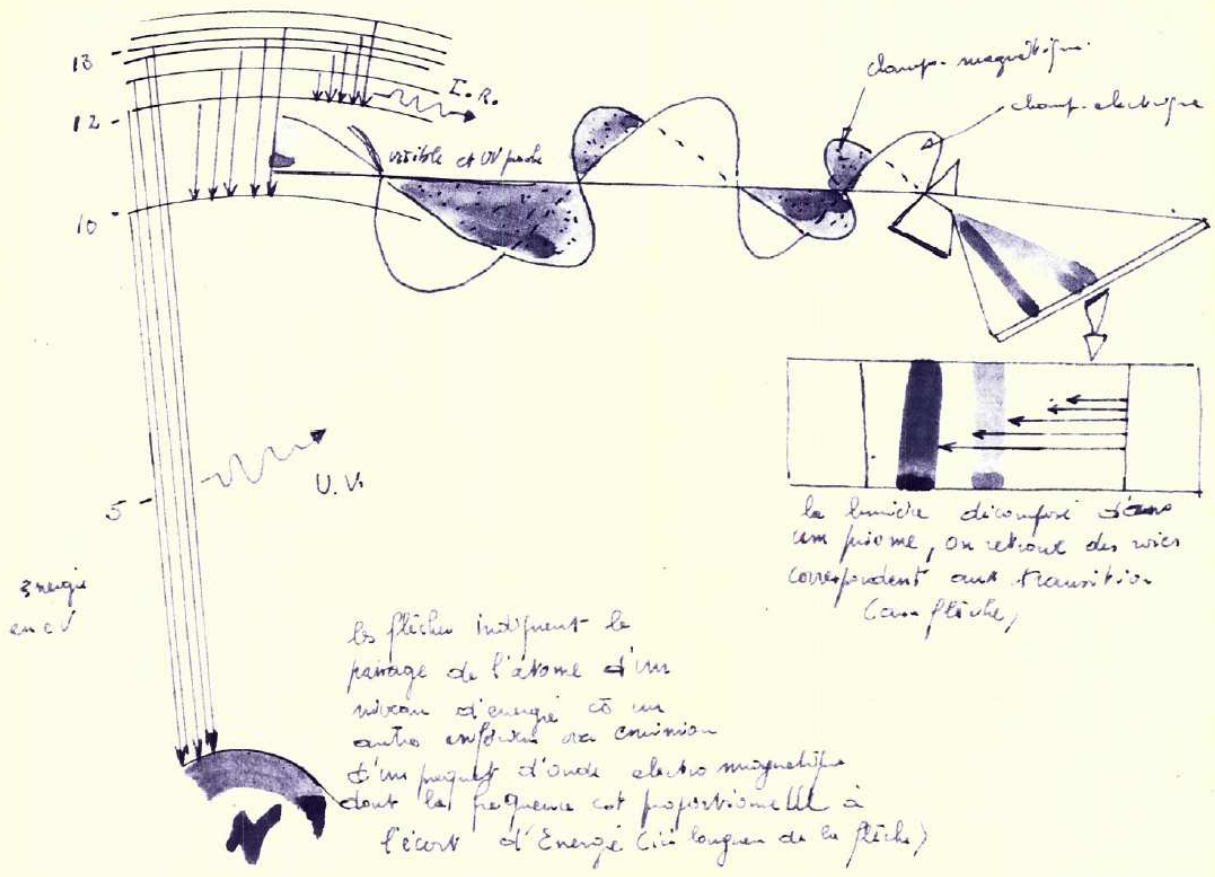 13
12
10
5
Energie
en eV
I.R.
visible et UV proche
champ-magnétique
champ-electrique
U.V.
N
la lumière décomposé dans
um prisme, on retrouve des raies
correspondent aux transition
(aux flèche)
les flèches indiquent le
passage de l'atome d'un
niveau d'energie à un
autre
d'um paquet d'onde electro magnetique
dont la frequence est proportionnelle à
l'écart d'Energé (ici longueur de la flèche)